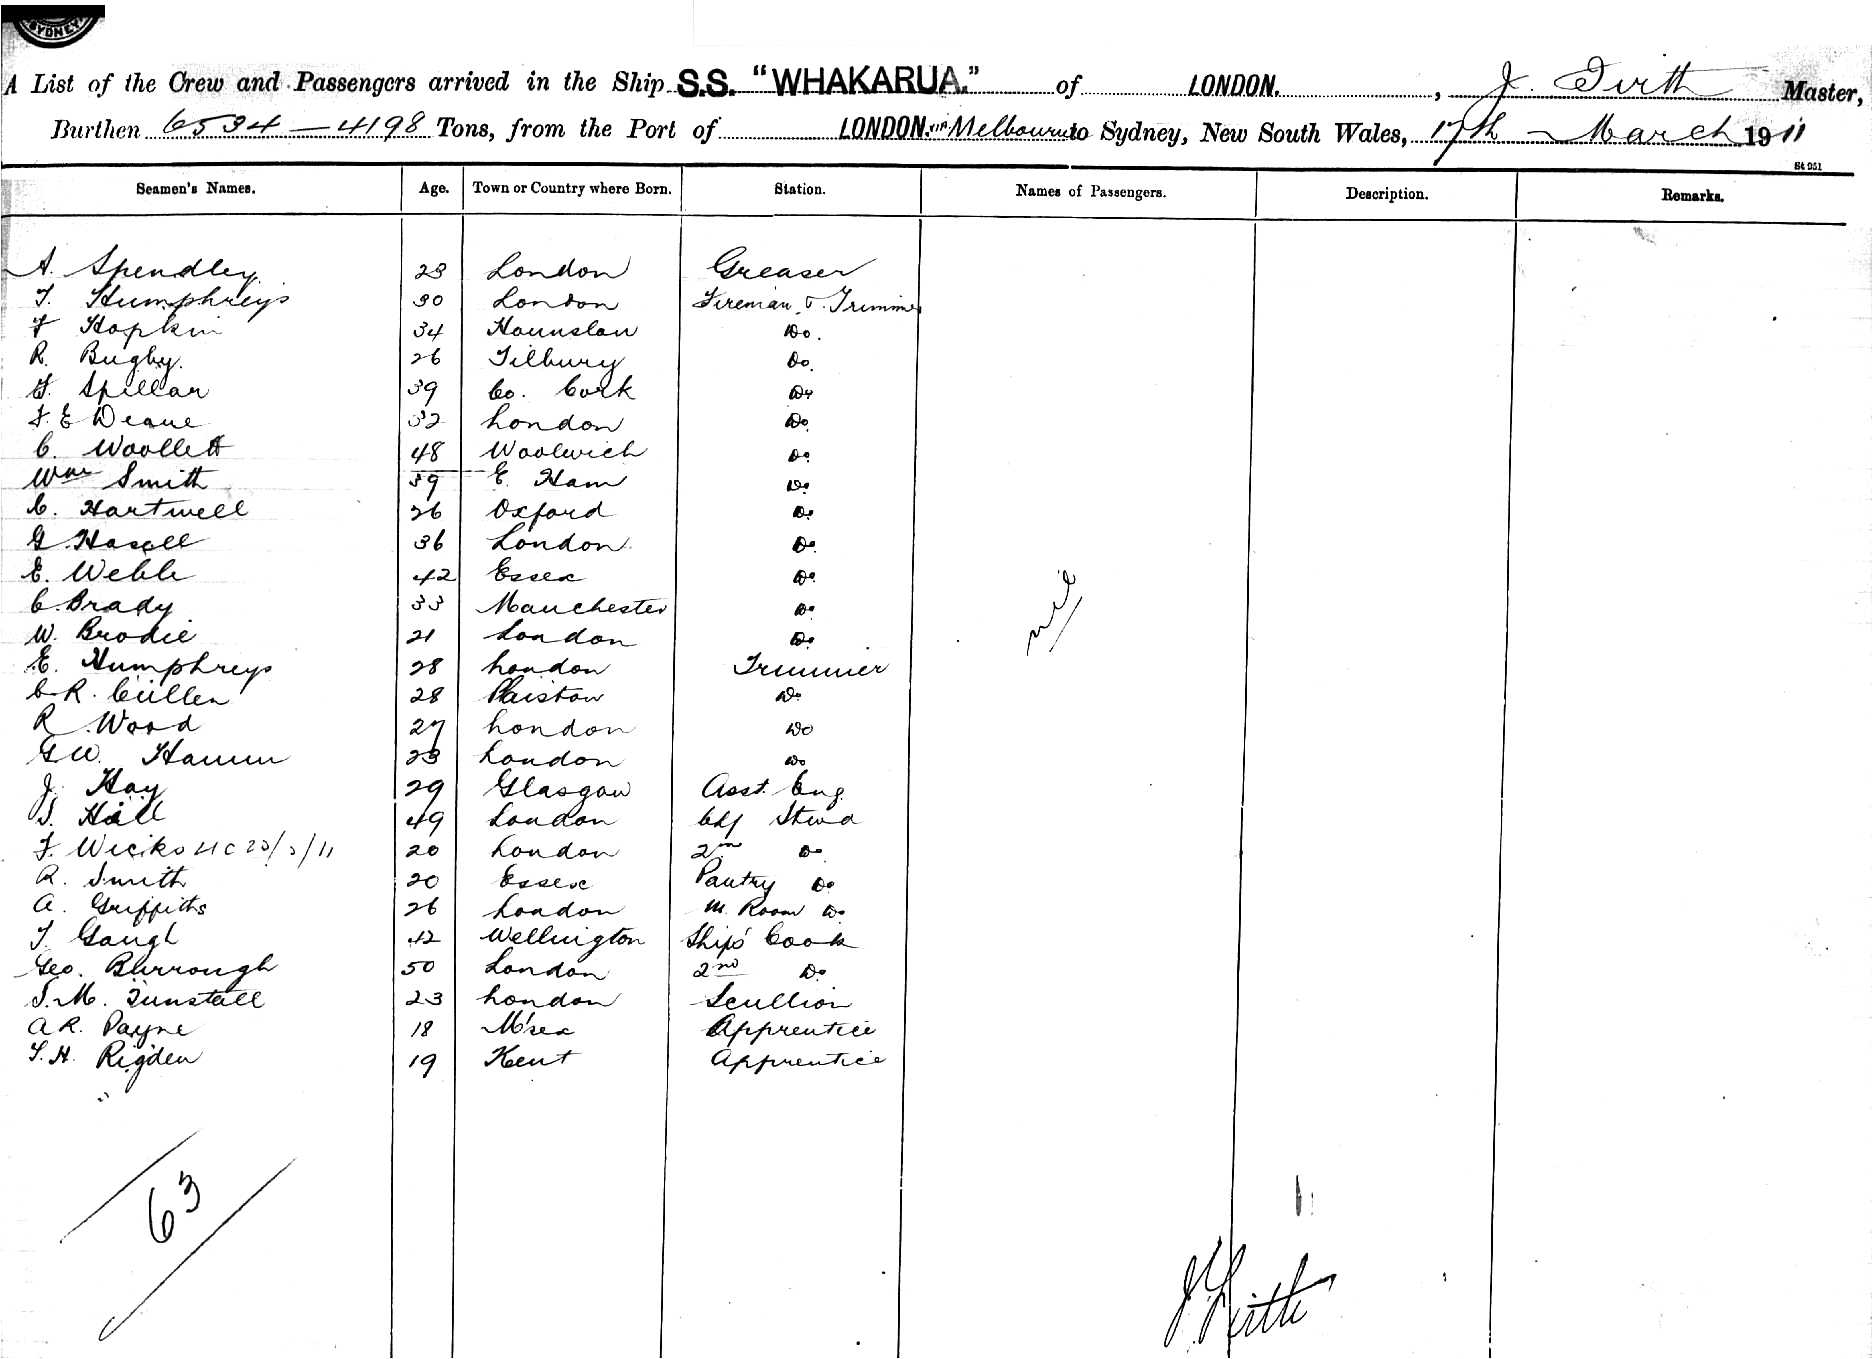 SYDNEY
A List of the Crew and Passengers arrived in the Ship S.S. "WHAKARUA." of LONDON. , J. Firth Master,
Burthen 6534 — 4198 Tons, from the Port of LONDON. via Melbourne to Sydney, New South Wales, 17th March 1911
St 951
Seamen's Names. Age. Town or Country where Born. Station. Names of Passengers. Description. Remarks.
A. Spendley 23 London Greaser
T. Humphreys 30 London Fireman & Trimmer
F Hopkin 34 Hounslow Do.
R. Bugby. 26 Tilbury Do.
Spillar 39 Co. Cork Do
F. E Deane 32 London Do.
C. Woollett 48 Woolwich Do
Wm Smith 39 E. Ham Do.
C. Hartwell 26 Oxford Do
G. Hasell 36 London Do
E. Webb 42 Essex Do
C. Brady 33 Manchester Do
W. Brodie 21 London Do
E. Humphreys 28 London Trimmer
C. R. Cullen 28 Plaistow Do
R. Wood 27 London Do
G W. Hamm 23 London Do
J. Hay 29 Glasgow Asst. Eng.
Hall 49 London Chf Stwd
F. 20 London 2nd Do
R. Smith 20 Essex Pantry Do
A. Griffiths 26 London M. Room Do
T. Gaugh 42 Wellington Ship's Cook
Geo. Burrough 50 London 2nd Do.
S. M. Tunstall 23 London Scullion
A R. Payne 18 M'sex Apprentice
H. Rigden 19 Kent Apprentice
nil
63
J Firth